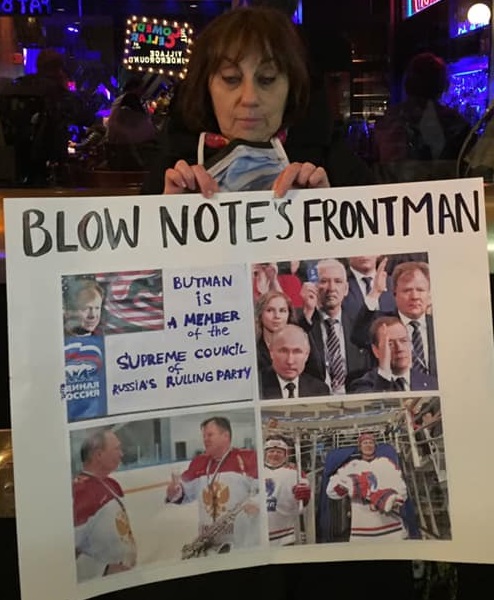 COMEDY
CELLAR
at
VILLAGE
UNDERGROUND
BLOW NOTE'S FRONTMAN
BUTMAN
iS
A MEMBER
of the
SUPREME COUNCIL
of
RUSSIA'S RULLING PARTY
ЕДИНАЯ
РОССИЯ